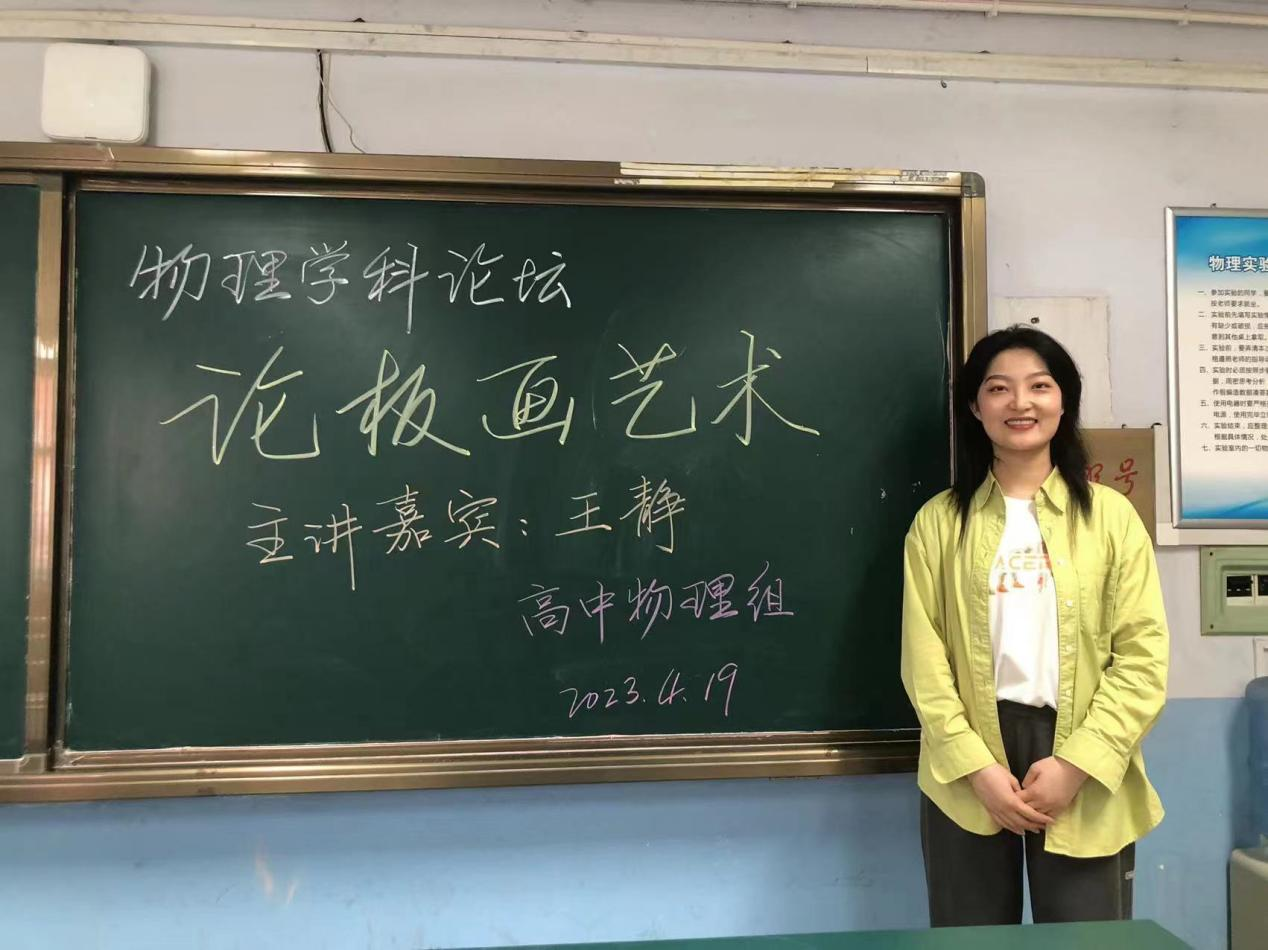 物理学科论坛
论板画艺术
主讲嘉宾：王静
高中物理组
2023.4.19
物理实验
一、参加实验的同学，
按老师要求就坐。
二、实验前先填写实验
有缺少或破损，应
意到其他桌上拿取。
三、实验前，要弄清本
格遵照老师的指导
四、实验时必须按照步
据，周密思考分析
作假编造数据凑答
五、使用电器时要严格
电源，使用完毕立
六、实验结束，应整理
根据具体情况，处
七、实验室内的一切物
号
ACE